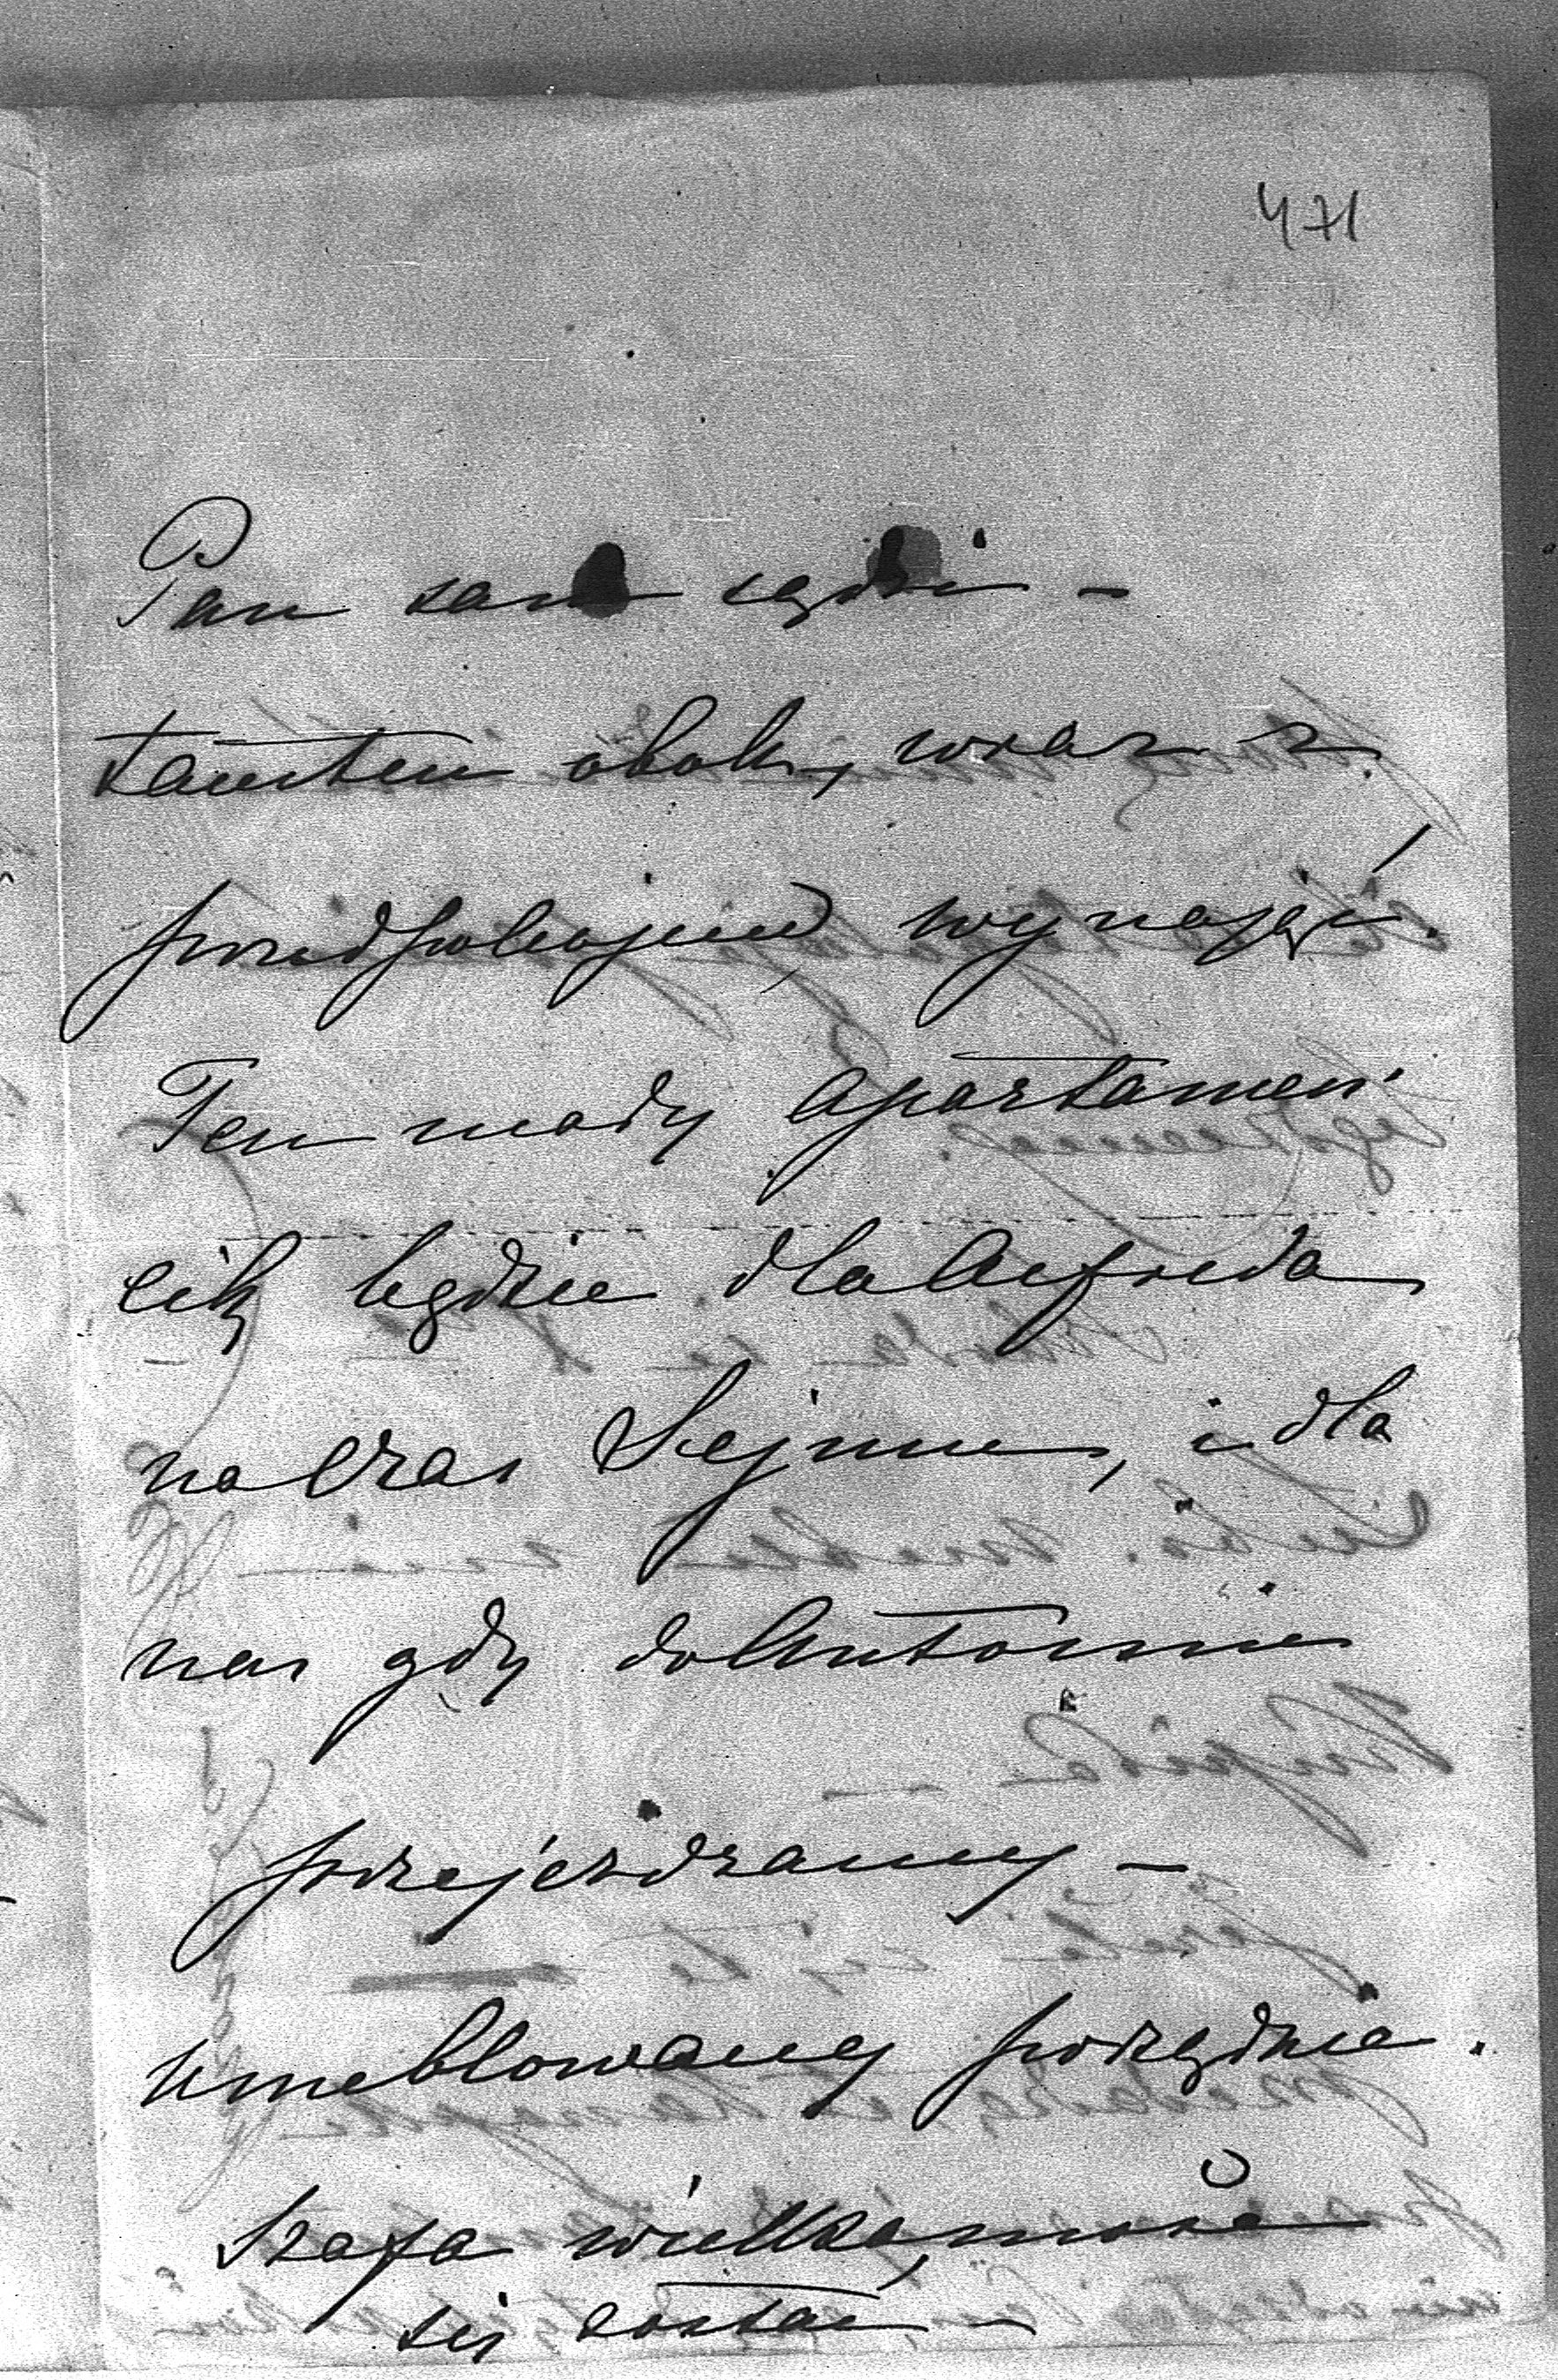 471
Pan sam sądzi –
tamten obok, wraz z
przedpokojem wynająć.
Ten mały apartamen
cik będzie dla Alfreda
na czas Sejmu, i dla
nas gdy do Antonin
przejeżdzamy –
umeblowany porządnie.
Szafa wielka, może
się zostać –